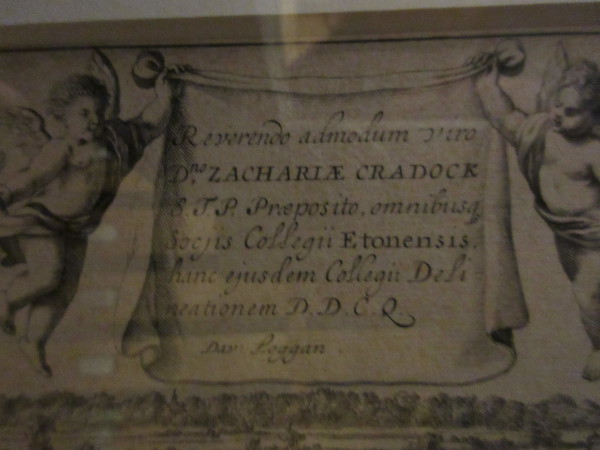 Reverendo admodum Viro
D.no ZACHARIÆ CRADOCK
S.T.P. Præposito, omnibusq
Socjis Collegii Etonensis,
hanc ejusdem Collegii Deli-
neationem D.D.C.Q.
Dav: Loggan.